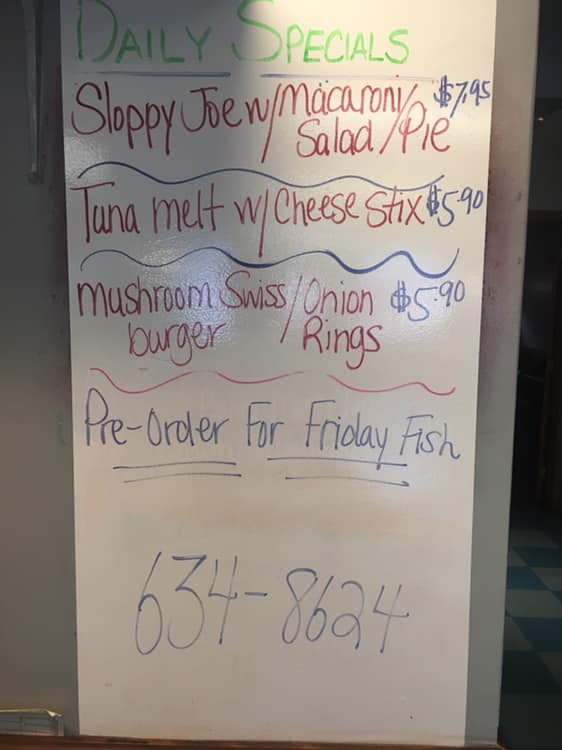 DAILY SPECIALS
Sloppy Joe w/Macaroni/ $7.95
Salad/Pie
Tuna melt w/Cheese Stix $5.90
mushroom Swiss/Onion $5.90
burger Rings
Pre-Order For Friday Fish
634-8624